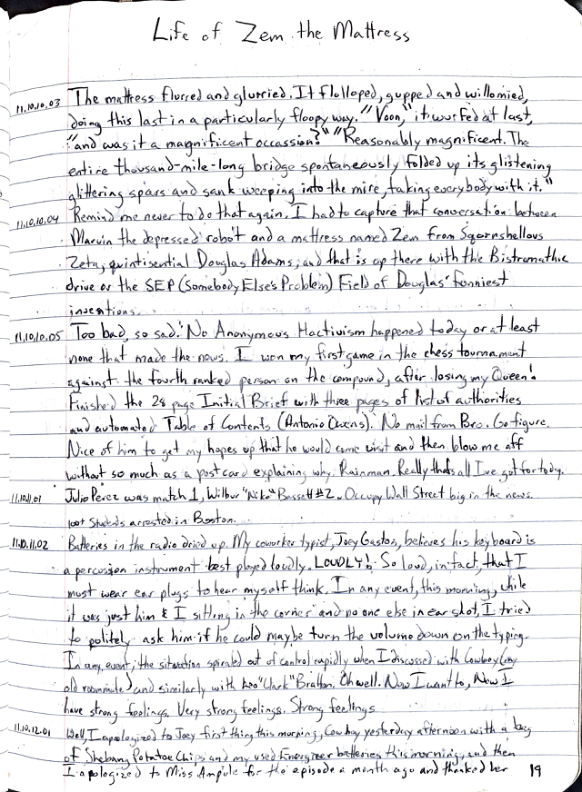 Life of Zem the Mattress
11.10.10.03 The mattress flurred and glurried. It flolloped, gupped and willomied,
doing this last in a particularly floopy way. "Voon," it wurfed at last,
"and was it a magnificent occassion?" "Reasonably magnificent. The
entire thousand-mile-long bridge spontaneously folded up its glistening
glittering spars and sank weeping into the mire, taking everybody with it."
11.10.10.04 Remind me never to do that again. I had to capture that conversation between
Marvin the depressed robot and a mattress named Zem from Sqornshellous
Zeta, quintisential Douglas Adams; and that is up there with the Bistromathic
drive or the SEP (Somebody Else's Problem) Field of Douglas' funniest
inventions.
11.10.10.05 Too bad, so sad! No Anonymous Hactivism happened today or at least
none that made the news. I won my first game in the chess tournament
against the fourth ranked person on the compound, after losing my Queen!
Finished the 28 page Initial Brief with three pages of list of authorities
and automated Table of Contents (Antonio Owens). No mail from Bro. Go figure.
Nice of him to get my hopes up that he would come visit and then blow me off
without so much as a postcard explaining why. Rainman. Really that's all I've got for today.
11.10.11.01 Julio Perez was match 1, Wilbur "Niko" Bassett #2. Occupy Wall Street big in the news.
100+ Students arrested in Boston.
11.10.11.02 Batteries in the radio dried up. My coworker typist, Joey Gaston, believes his keyboard is
a percussion instrument best played loudly. LOUDLY! So loud, in fact, that I
must wear ear plugs to hear myself think. In any event, this morning, while
it was just him & I sitting in the corner and no one else in ear shot, I tried
to politely ask him if he could maybe turn the volume down on the typing.
In any event, the situation spiraled out of control rapidly when I discussed with Cowboy (my
old roommate) and similarly with "Clark" Bratton. Oh well. Now I want to, Now I
have strong feelings. Very strong feelings. Strong feelings
11.10.12.01 Well I apologized to Joey first thing this morning, Cowboy yesterday afternoon with a bag
of Shebang Potatoe Chips and my used Energizer batteries this morning, and then
I apologized to Miss Ampule for the episode a month ago and thanked her 19